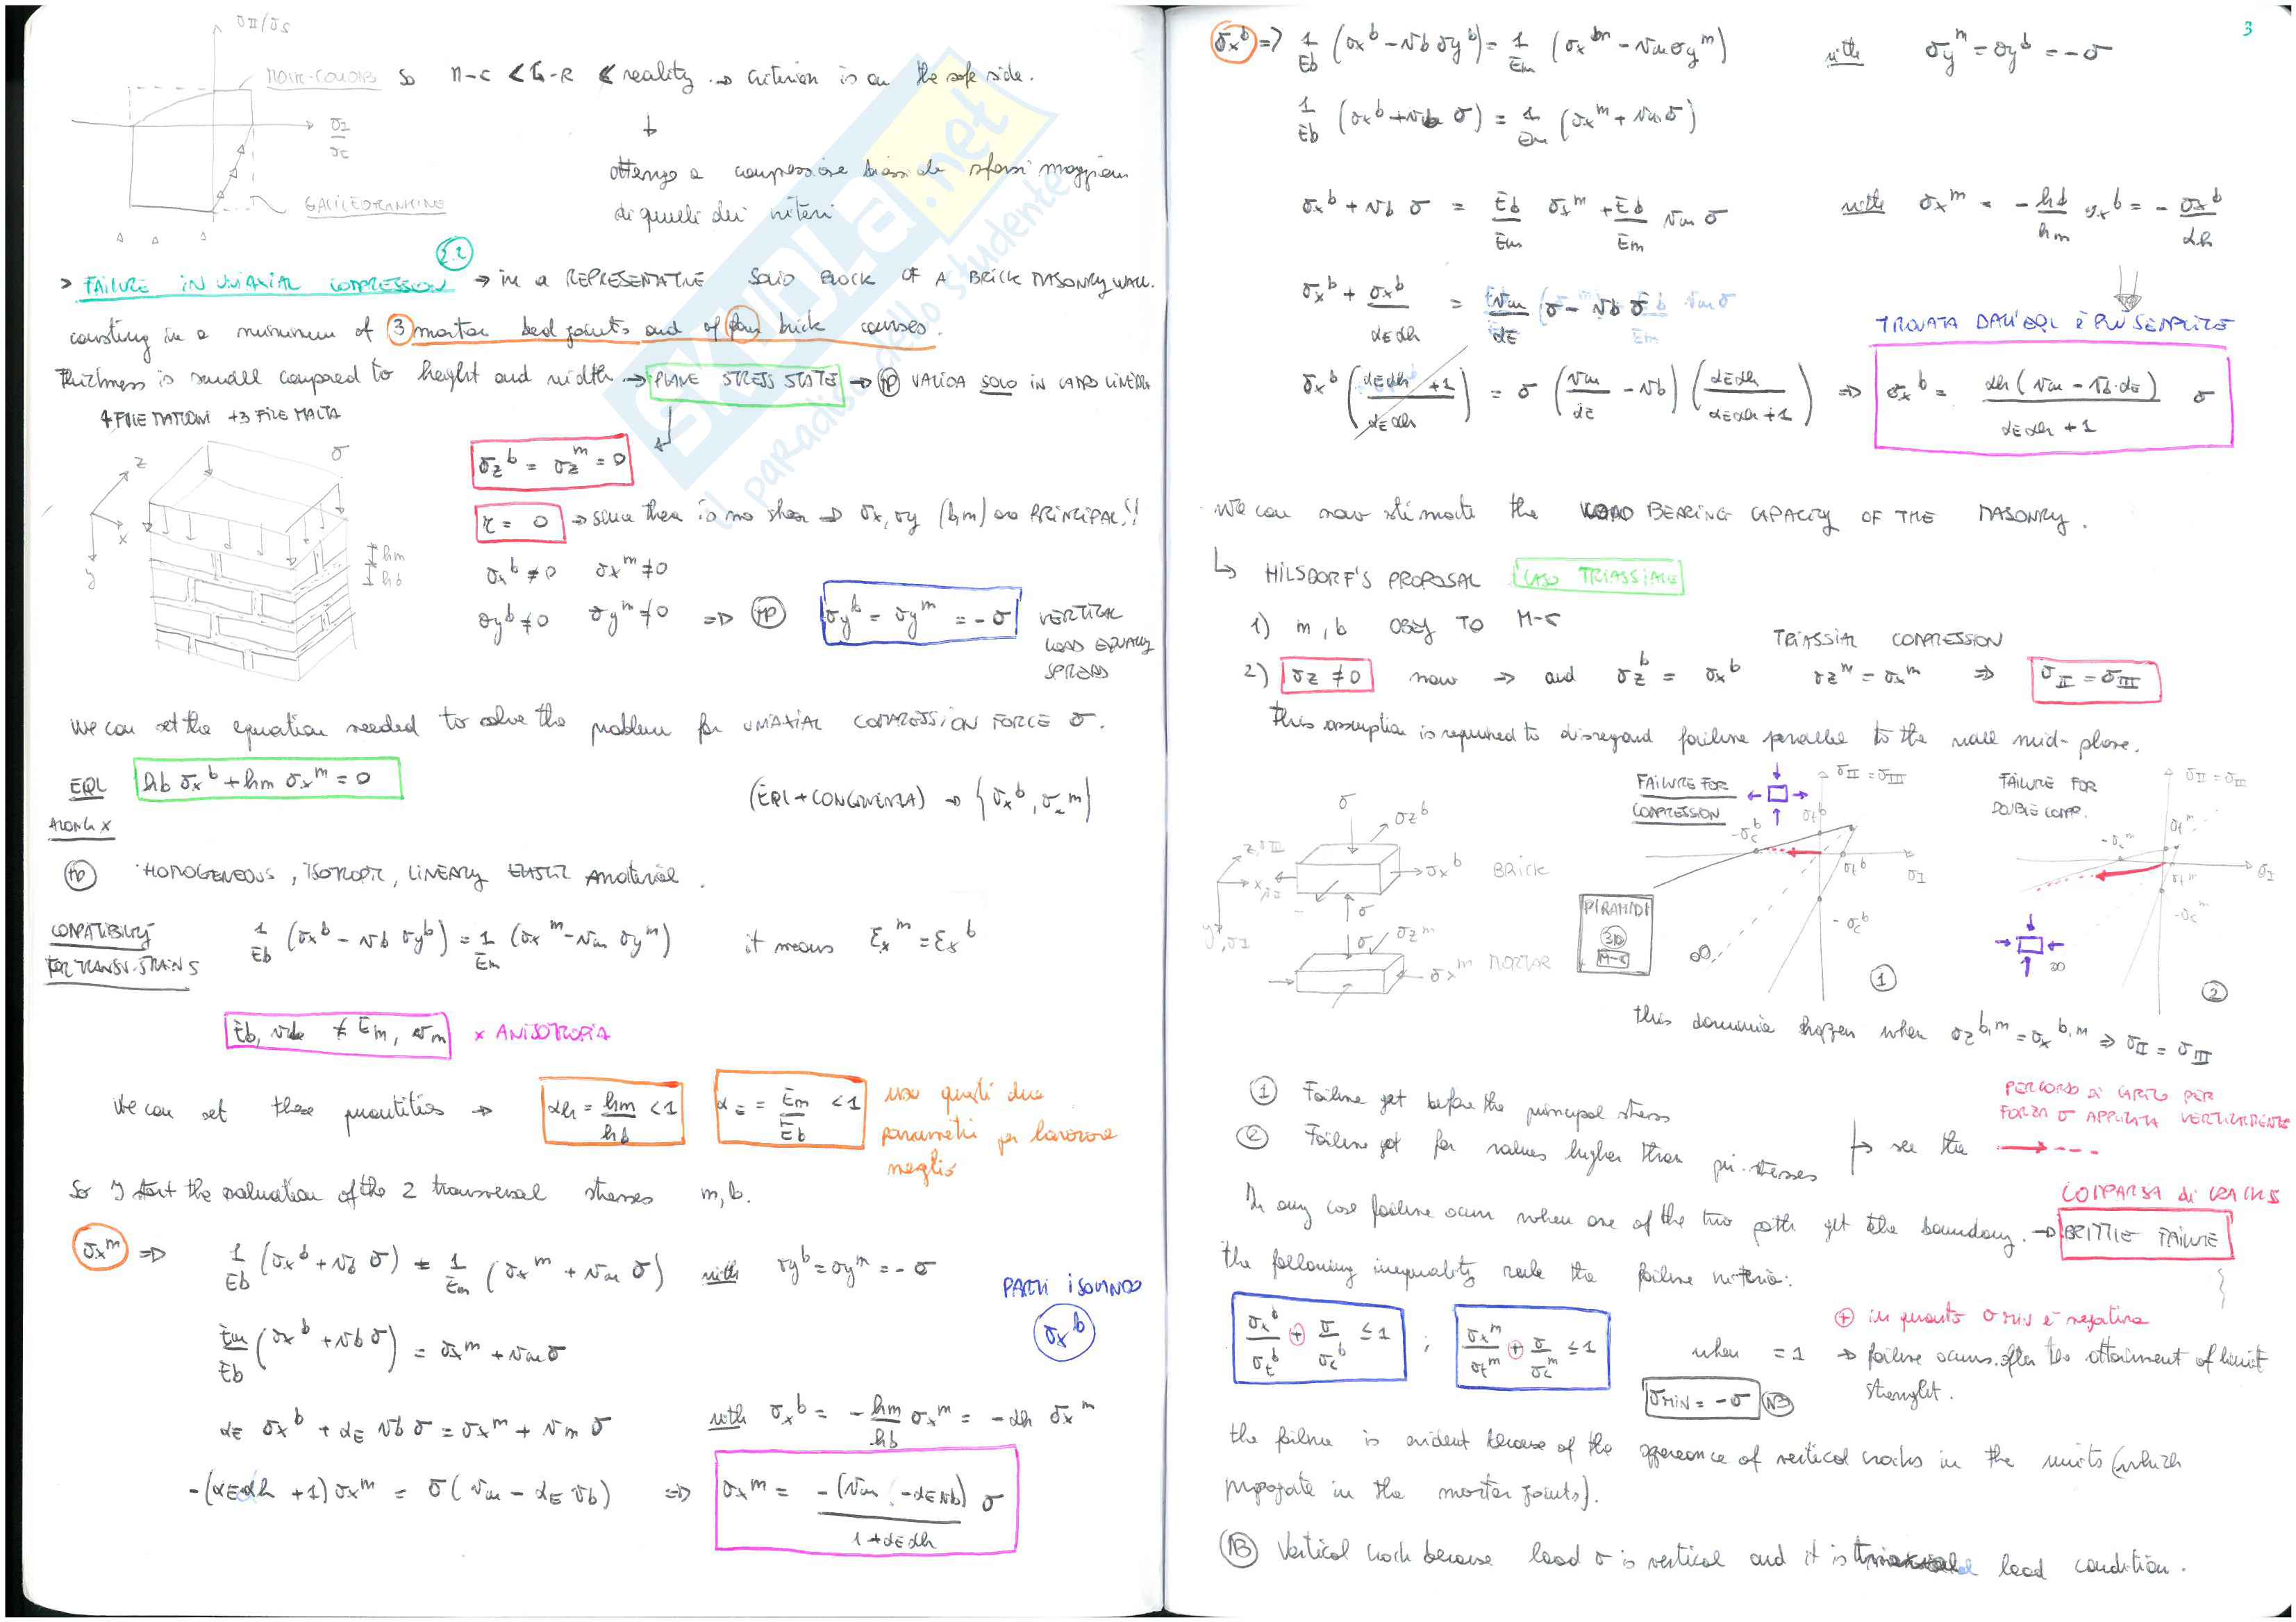 σII/σs
MOHR-COULOMB so M-C < G-R < reality → criterion is on the safe side.
σI/σc
↓
ottengo a compressione biassiale sforzi maggiori
GALILEO RANKINE
di quelli dei criteri
2.2
> FAILURE IN UNIAXIAL COMPRESSION → in a REPRESENTATIVE SOLID BLOCK OF A BRICK MASONRY WALL.
consting in a minimum of 3 mortar bed joints and of four brick courses.
thickness is small compared to height and width → PLANE STRESS STATE → HP VALIDA SOLO IN CAMPO LINEARE
4 FILE MATTONI + 3 FILE MALTA
z x y σ hm hb
σz^b = σz^m = 0
τ = 0 → since there is no shear ⇒ σx, σy (b,m) are PRINCIPAL!!
σx^b ≠ 0 σx^m ≠ 0
σy^b ≠ 0 σy^m ≠ 0 ⇒ HP σy^b = σy^m = -σ VERTICAL
LOAD EQUALLY
SPREAD
We can set the equation needed to solve the problem for UNIAXIAL COMPRESSION FORCE σ.
EQL hb σx^b + hm σx^m = 0
ALONG X
(EQL + CONGRUENZA) → {σx^b, σx^m}
HP HOMOGENEOUS, ISOTROPIC, LINEARY ELASTIC material.
COMPATIBILITY
FOR TRANSV. STRAINS
1/Eb (σx^b - νb σy^b) = 1/Em (σx^m - νm σy^m) it means εx^m = εx^b
Eb, νb ≠ Em, νm x ANISOTROPIA
We can set these quantities → αh = hm/hb < 1 αE = Em/Eb < 1 uso questi due
parametri per lavorare
meglio
So I start the evaluation of the 2 transversal stresses m, b.
σx^m ⇒ 1/Eb (σx^b + νb σ) = 1/Em (σx^m + νm σ) with σy^b = σy^m = -σ
PARTI ISOLANDO
σx^b
Em/Eb (σx^b + νb σ) = σx^m + νm σ
αE σx^b + αE νb σ = σx^m + νm σ with σx^b = - hm/hb σx^m = -αh σx^m
-(αE αh + 1) σx^m = σ (νm - αE νb) ⇒ σx^m = -(νm - αE νb)/(1 + αE αh) σ
3
σx^b ⇒ 1/Eb (σx^b - νb σy^b) = 1/Em (σx^m - νm σy^m) with σy^m = σy^b = -σ
1/Eb (σx^b + νb σ) = 1/Em (σx^m + νm σ)
σx^b + νb σ = Eb/Em σx^m + Eb/Em νm σ with σx^m = - hb/hm σx^b = - σx^b/αh
σx^b + σx^b/(αE αh) = νm/αE σ - νb σ
TROVATA DALL'EQL È PIÙ SEMPLICE
σx^b ((αE αh + 1)/(αE αh)) = σ (νm/αE - νb) (αE αh/(αE αh + 1)) ⇒ σx^b = αh (νm - νb · αE)/(αE αh + 1) σ
We can now stimate the LOAD BEARING CAPACITY OF THE MASONRY.
↳ HILSDORF'S PROPOSAL CASO TRIASSIALE
1) m, b OBEY TO M-C
TRIASSIAL COMPRESSION
2) σz ≠ 0 now → and σz^b = σx^b σz^m = σx^m ⇒ σII = σIII
This assumption is required to disregard failure parallel to the wall mid-plane.
FAILURE FOR
COMPRESSION
σII = σIII
FAILURE FOR
DOUBLE COMP.
σII = σIII
σ σz^b σx^b BRICK
z, σIII x, σII y, σI
σ σz^m σx^m MORTAR
-σc^b σt^b σt^b σI -σc^b
-σc^m σt^m σI σt^m -σc^m
PIRAMIDI
3D
M-C
∞ 1
∞ 2
this dominia happen when σz^b,m = σx^b,m ⇒ σII = σIII
1 Failure get before the principal stress
2 Failure get for values higher than pri. stresses
see the
PERCORSO DI CARICO PER
FORZA σ APPLICATA VERTICALMENTE
In any case failure occurs when one of the two path get the boundary. → BRITTLE FAILURE
COMPARSA di CRACKS
the following inequality rule the failure criteria:
σx^b/σt^b + σ/σc^b ≤ 1 ; σx^m/σt^m + σ/σc^m ≤ 1
+ in quanto σ MIN è negativa
when = 1 → failure occurs after the attainment of limit
strenght.
σMIN = -σ NB
the failure is evident because of the apperance of vertical cracks in the units (which
propagate in the mortar joints).
NB Vertical crack because load σ is vertical and it is load condition.
SKUOLA.net
il paradiso dello studente